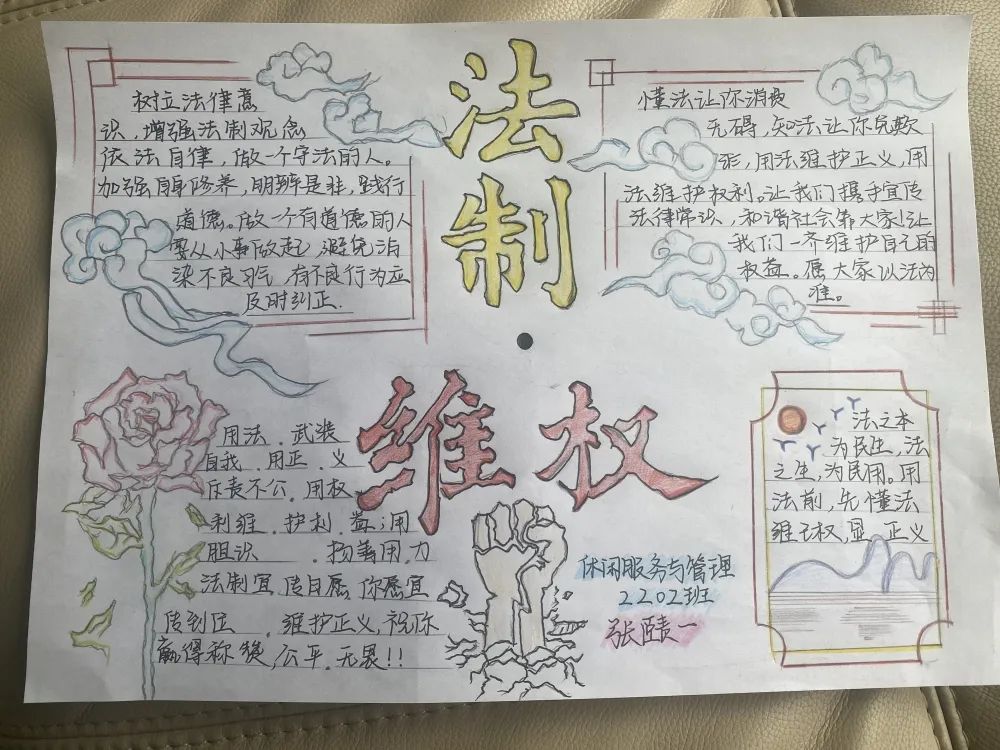 法制
维权
树立法律意
识，增强法制观念
依法自律，做一个守法的人。
加强自身修养，明辨是非，践行
道德。做一个有道德的人
要从小事做起，避免沾
染不良习气，有不良行为应
及时纠正.
懂法让你消费
无碍，知法让你免欺
诈，用法维护正义，用
法维护权利。让我们携手宣传
法律常识，和谐社会靠大家！让
我们一齐维护自己的
权益。愿大家以法为
准。
用法.武装
自我.用正.义
斥责不公.用权.
利维.护利.益；用
胆识.扬善用.力
法制宣.传自愿.你愿宣
传到位.维护正义，祝你
赢得称赞，公平.无畏！！
法之本
为民生，法
之生，为民用。用
法前，先懂法
维王权，显正义
休闲服务与管理
2202班
张赜一